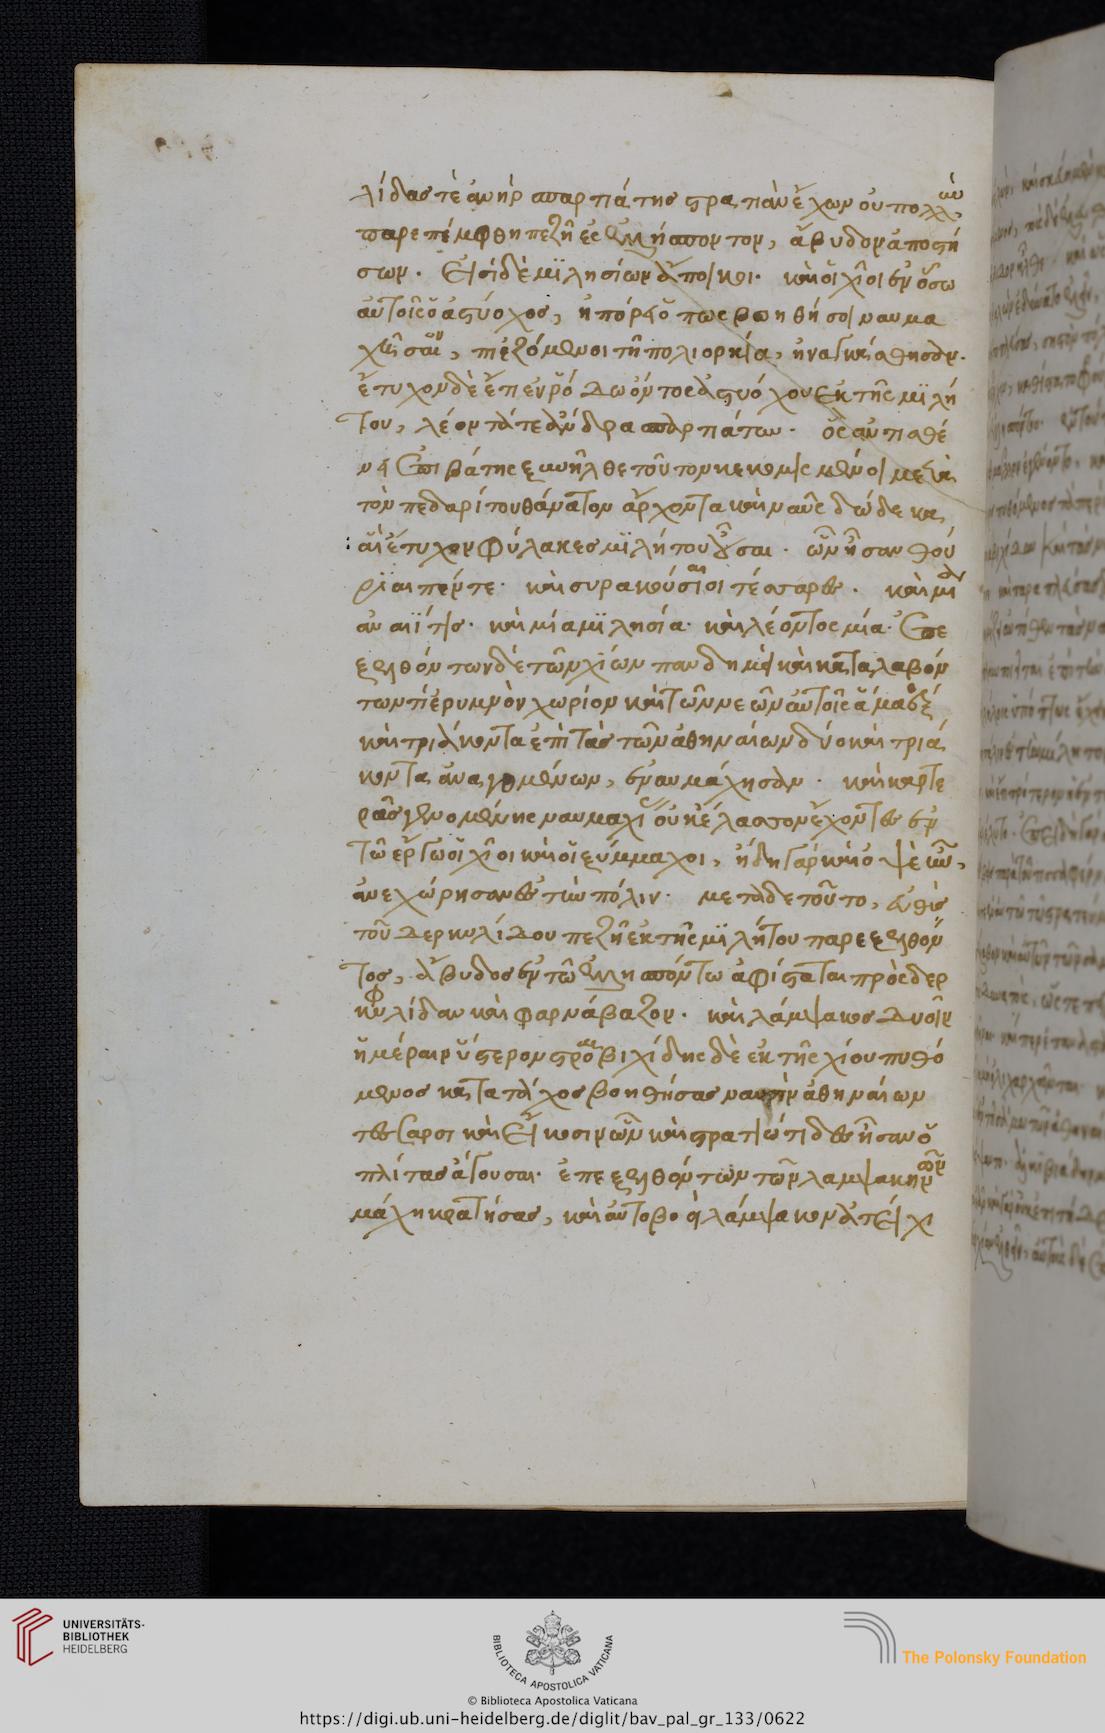 λίδας τὲ ἀνὴρ σπαρτιάτης στρατιὰν ἔχων οὐ πολλὴν
παρεπέμφθη πεζῆ ἐς ἑλλήσποντον, ἄβυδον ἀποστή
σων. εἰσὶ δὲ μϊλησίων ἄποικοι. καὶ οἱ χῖοι ἐν ὅσω
αὐτοῖς ὁ ἀστύοχος, ἠπόρει ὅπως βοηθήσοι ναυμα
χῆσαι, πιεζόμενοι τῆ πολιορκία, ἠναγκάσθησαν.
ἔτυχον δὲ ἔτι ἐν ῥόδω ὄντος ἀστυόχου ἐκ τῆς μϊλή
του, λέοντά τε ἄνδρα σπαρτιάτην. ὃς ἀντισθέ
νει ἐπιβάτης ξυνῆλθε τοῦτον κεκομισμένοι μετὰ
τὸν πεδαρίτου θάνατον ἄρχοντα καὶ ναῦς δώδεκα,
αἳ ἔτυχον φύλακες μϊλήτου οὖσαι. ὧν ἦσαν θού
ριαι πέντε. καὶ συρακούσιαι τέσσαρες. καὶ μία
αναιῖτις. καὶ μία μϊλησία. καὶ λέοντος μία. ἐπε
ξελθόντων δὲ τῶν χίων πανδημεὶ καὶ καταλαβόν
των τι ἐρυμνὸν χωρίον καὶ τῶν νεῶν αὐτοῖς ἅμα ἓξ
καὶ τριάκοντα ἐπὶ τὰς τῶν ἀθηναίων δύο καὶ τριά
κοντα ἀναγομένων, ἐναυμάχησαν. καὶ καρτε
ρᾶς γενομένης ναυμαχίας οὐκ ἔλασσον ἔχοντες ἐν
τῶ ἔργω οἱ χῖοι καὶ οἱ ξύμμαχοι, ἤδη γὰρ καὶ ὀψὲ ἦν,
ἀνεχώρησαν ἐς τὴν πόλιν. μετὰ δὲ τοῦτο, εὐθὺς
τοῦ δερκυλίδου πεζῆ ἐκ τῆς μϊλήτου παρεξελθόν
τος, ἄβυδος ἐν τῶ ἑλλησπόντω ἀφίσταται πρὸς δερ
κυλίδαν καὶ φαρνάβαζον. καὶ λάμψακος δυοῖν
ἡμέραιν ὕστερον στρομβιχίδης δὲ ἐκ τῆς χίου πυθό
μενος κατὰ τάχος βοηθήσας ναυσὶν ἀθηναίων
τέσσαρσι καὶ εἴκοσιν ὧν καὶ στρατιώτιδες ἦσαν ὁ
πλίτας ἄγουσαι. ἐπεξελθόντων τῶν λαμψακηνῶν
μάχη κρατήσας, καὶ αὐτοβοεὶ λάμψακον ἀτείχι
UNIVERSITÄTS-
BIBLIOTHEK
HEIDELBERG
BIBLIOTECA APOSTOLICA VATICANA
The Polonsky Foundation
© Biblioteca Apostolica Vaticana
https://digi.ub.uni-heidelberg.de/diglit/bav_pal_gr_133/0622